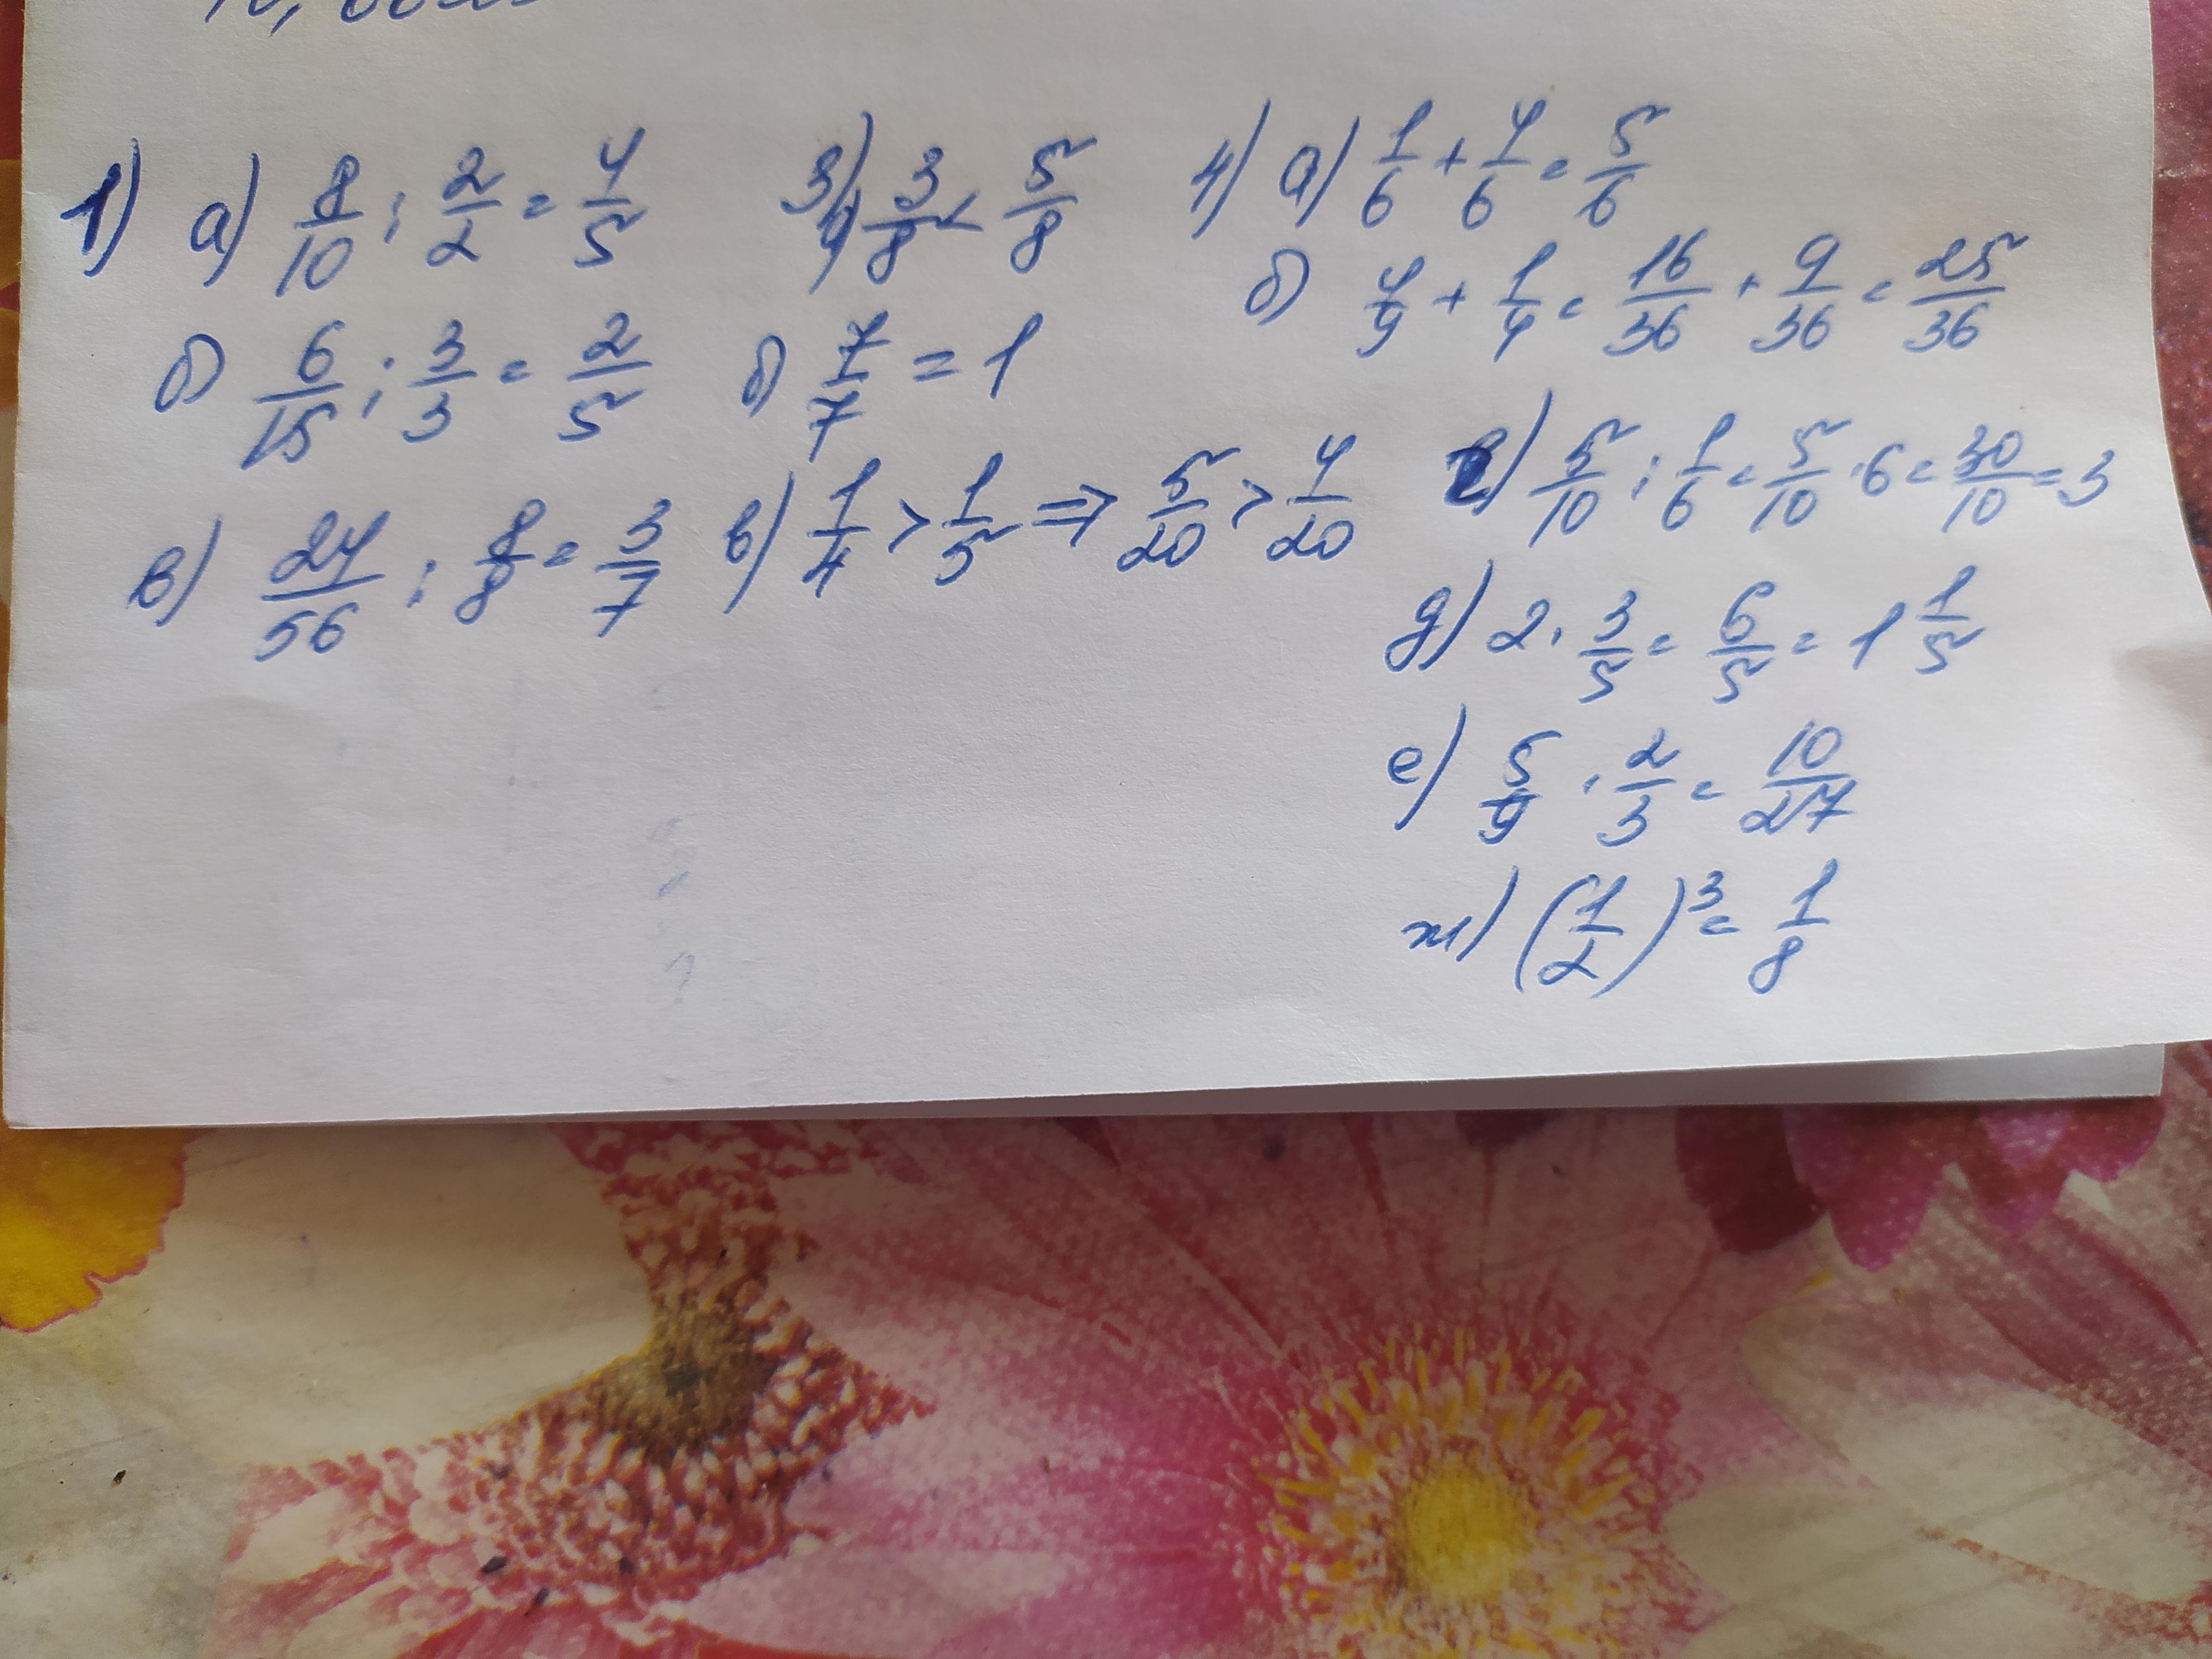 1) а) 8/10 : 2/2 = 4/5
б) 6/15 : 3/3 = 2/5
в) 24/56 : 8/8 = 3/7
3) а) 3/8 < 5/8
б) 7/7 = 1
в) 1/4 > 1/5 => 5/20 > 4/20
4) а) 1/6 + 4/6 = 5/6
б) 4/9 + 1/4 = 16/36 + 9/36 = 25/36
г) 5/10 : 1/6 = 5/10 · 6 = 30/10 = 3
д) 2 · 3/5 = 6/5 = 1 1/5
е) 5/9 · 2/3 = 10/27
ж) (1/2)³ = 1/8